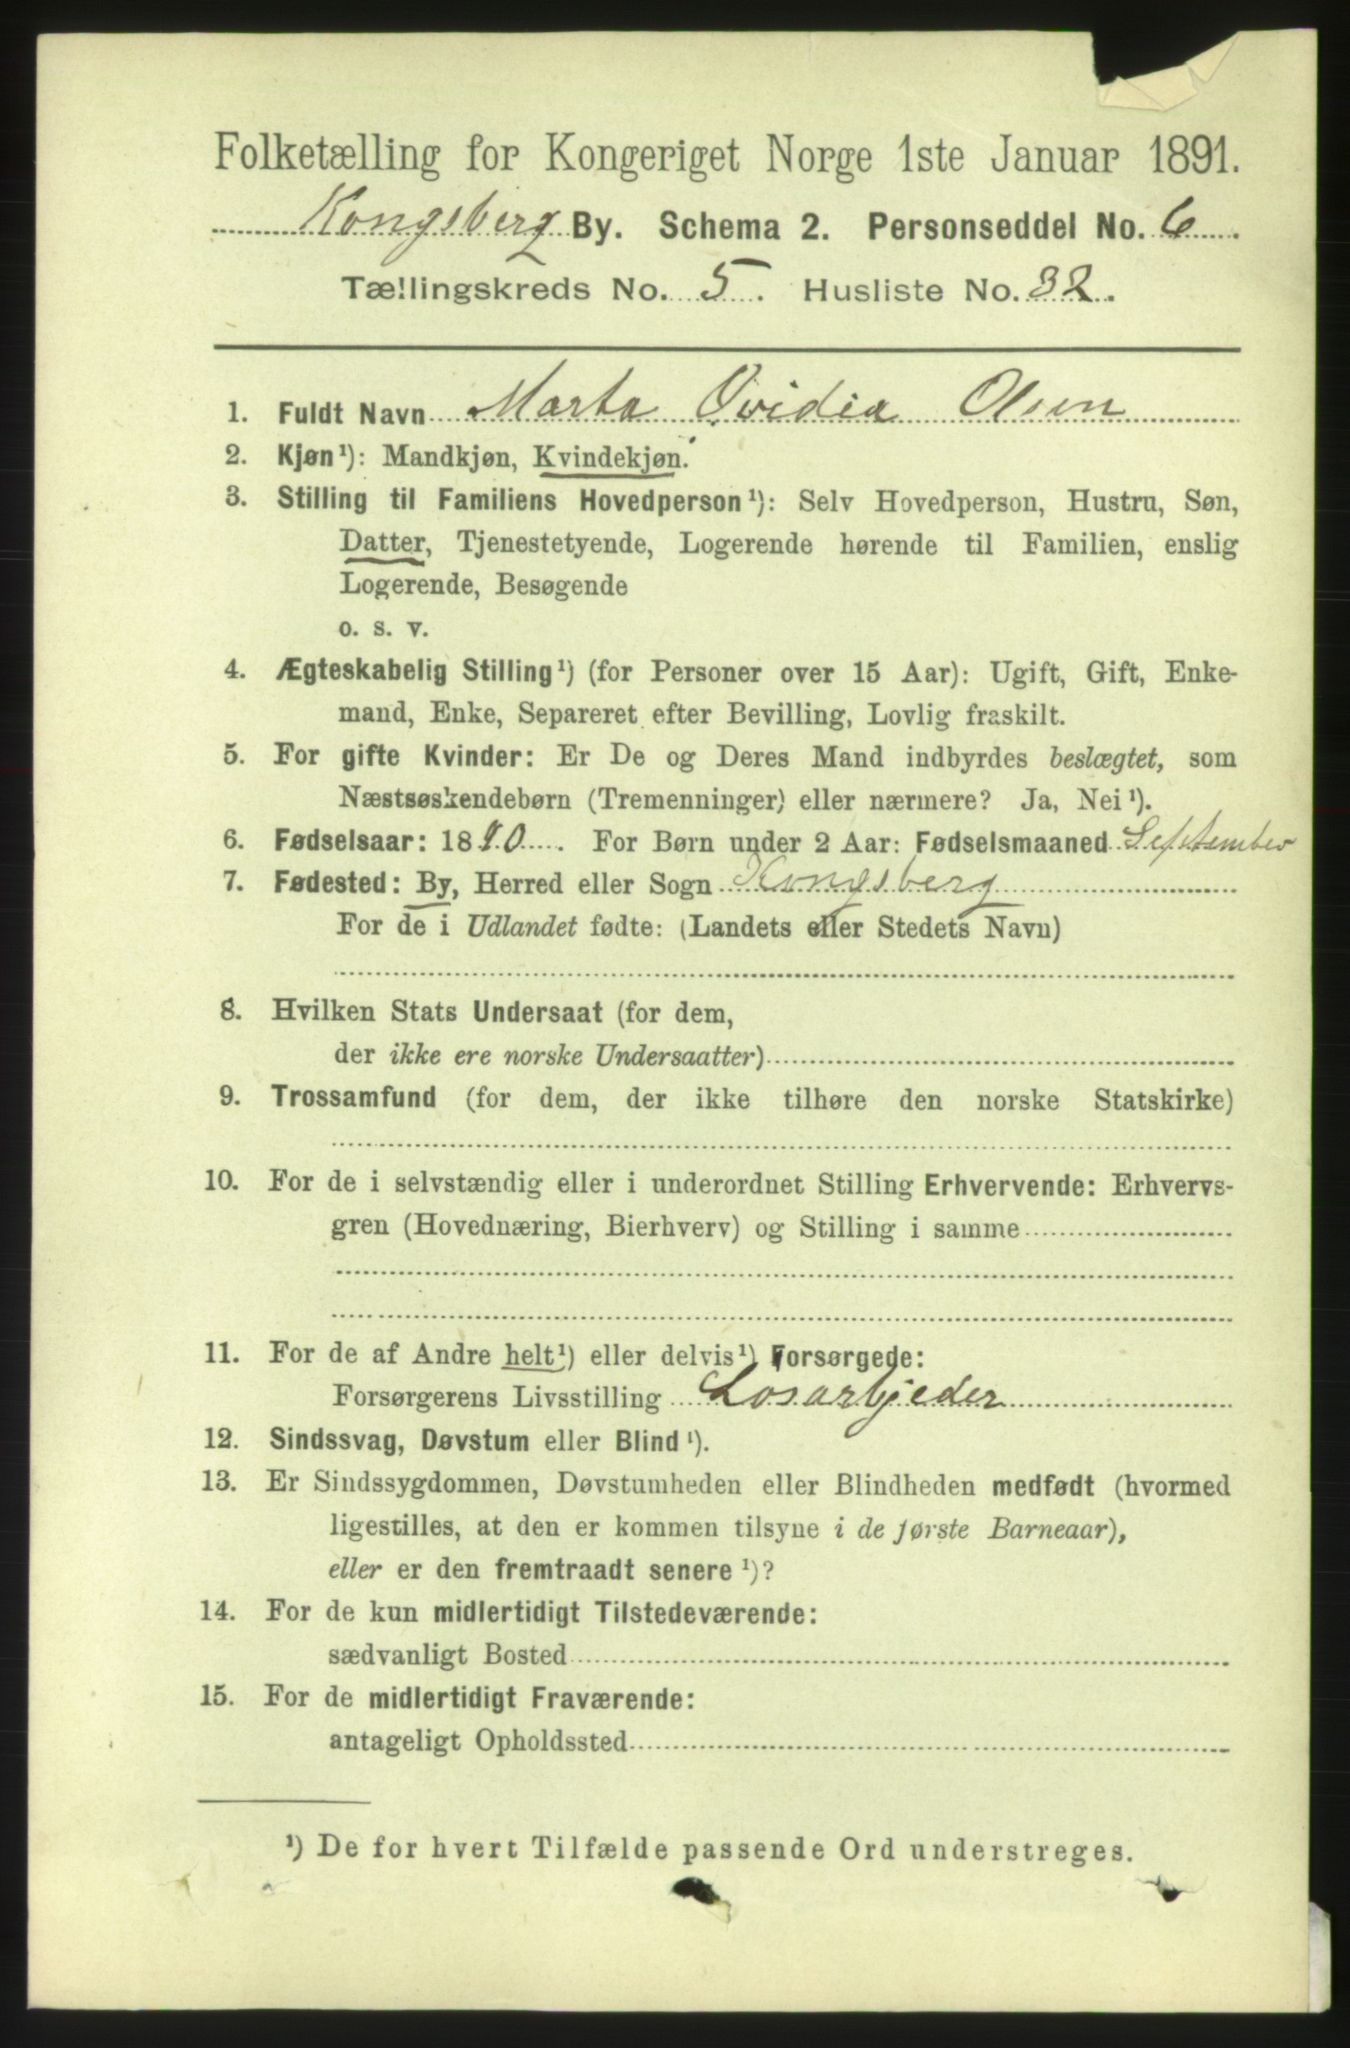 Folketælling for Kongeriget Norge 1ste Januar 1891.
Kongsberg By. Schema 2. Personseddel No. 6.
Tællingskreds No. 5. Husliste No. 32.
1. Fuldt Navn Marta Ovidia Olsen
2. Kjøn¹): Mandkjøn, Kvindekjøn.
3. Stilling til Familiens Hovedperson¹): Selv Hovedperson, Hustru, Søn,
Datter, Tjenestetyende, Logerende hørende til Familien, enslig
Logerende, Besøgende
o. s. v.
4. Ægteskabelig Stilling¹) (for Personer over 15 Aar): Ugift, Gift, Enke-
mand, Enke, Separeret efter Bevilling, Lovlig fraskilt.
5. For gifte Kvinder: Er De og Deres Mand indbyrdes beslægtet, som
Næstsøskendebørn (Tremenninger) eller nærmere? Ja, Nei¹).
6. Fødselsaar: 1890. For Børn under 2 Aar: Fødselsmaaned September
7. Fødested: By, Herred eller Sogn Kongsberg
For de i Udlandet fødte: (Landets eller Stedets Navn)
8. Hvilken Stats Undersaat (for dem,
der ikke ere norske Undersaatter)
9. Trossamfund (for dem, der ikke tilhøre den norske Statskirke)
10. For de i selvstændig eller i underordnet Stilling Erhvervende: Erhvervs-
gren (Hovednæring, Bierhverv) og Stilling i samme
11. For de af Andre helt¹) eller delvis¹) Forsørgede:
Forsørgerens Livsstilling Losarbjeder
12. Sindssvag, Døvstum eller Blind¹).
13. Er Sindssygdommen, Døvstumheden eller Blindheden medfødt (hvormed
ligestilles, at den er kommen tilsyne i de første Barneaar),
eller er den fremtraadt senere¹)?
14. For de kun midlertidigt Tilstedeværende:
sædvanligt Bosted
15. For de midlertidigt Fraværende:
antageligt Opholdssted
¹) De for hvert Tilfælde passende Ord understreges.